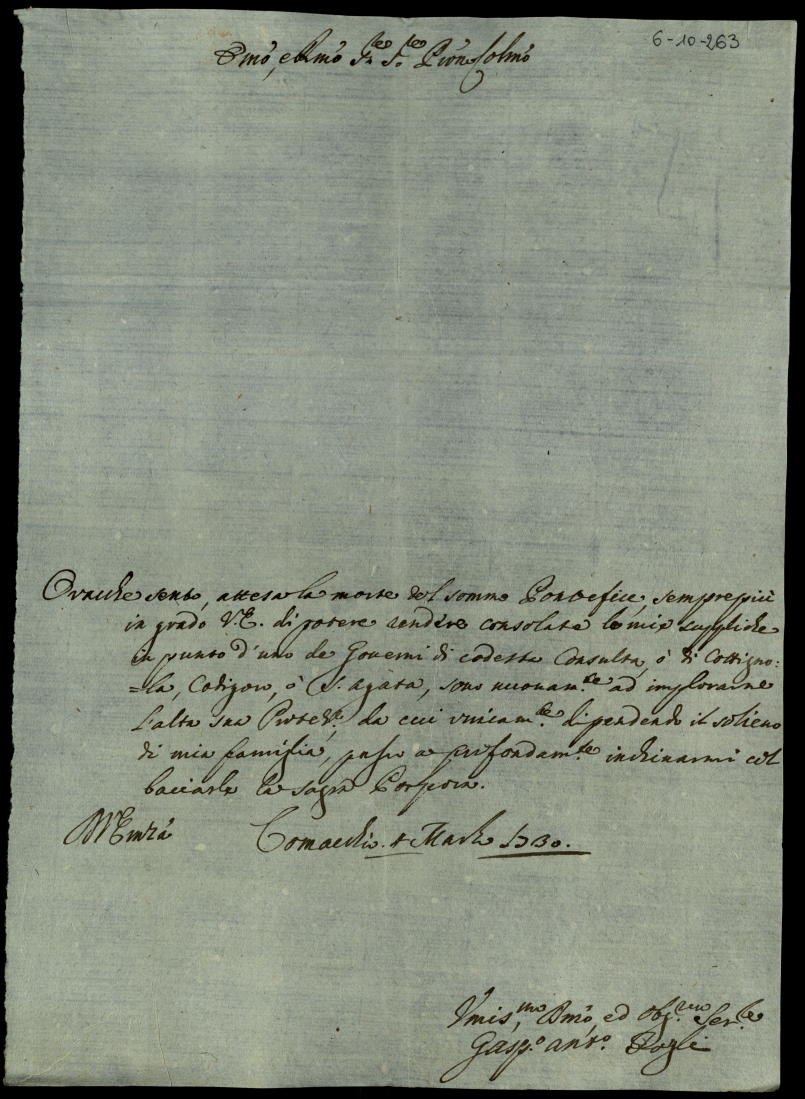 6-10-263
Emo, e Rmo Sre Sre Pron Colmo
Ora che sento, attesa la morte del sommo Pontefice, semprepiù
in grado V.E. di potere rendere consolate le mie suppliche
in punto d'uno de Governi di codesta Consulta, ò di Cottigno:
=la, Codigoro, ò S. Agata, sono nuovam.te ad implorarne
l'alta sua Protez.e, da cui unicam.te dipendendo il solievo
di mia famiglia, passo a profondam.te inchinarmi col
bacciarle la sagra Porpora.
Di V Emza
Comacchio. 4 Marzo 1730.
Umis.mo Dmo, ed Obg.mo Ser.re
Gasp.o Ant.o